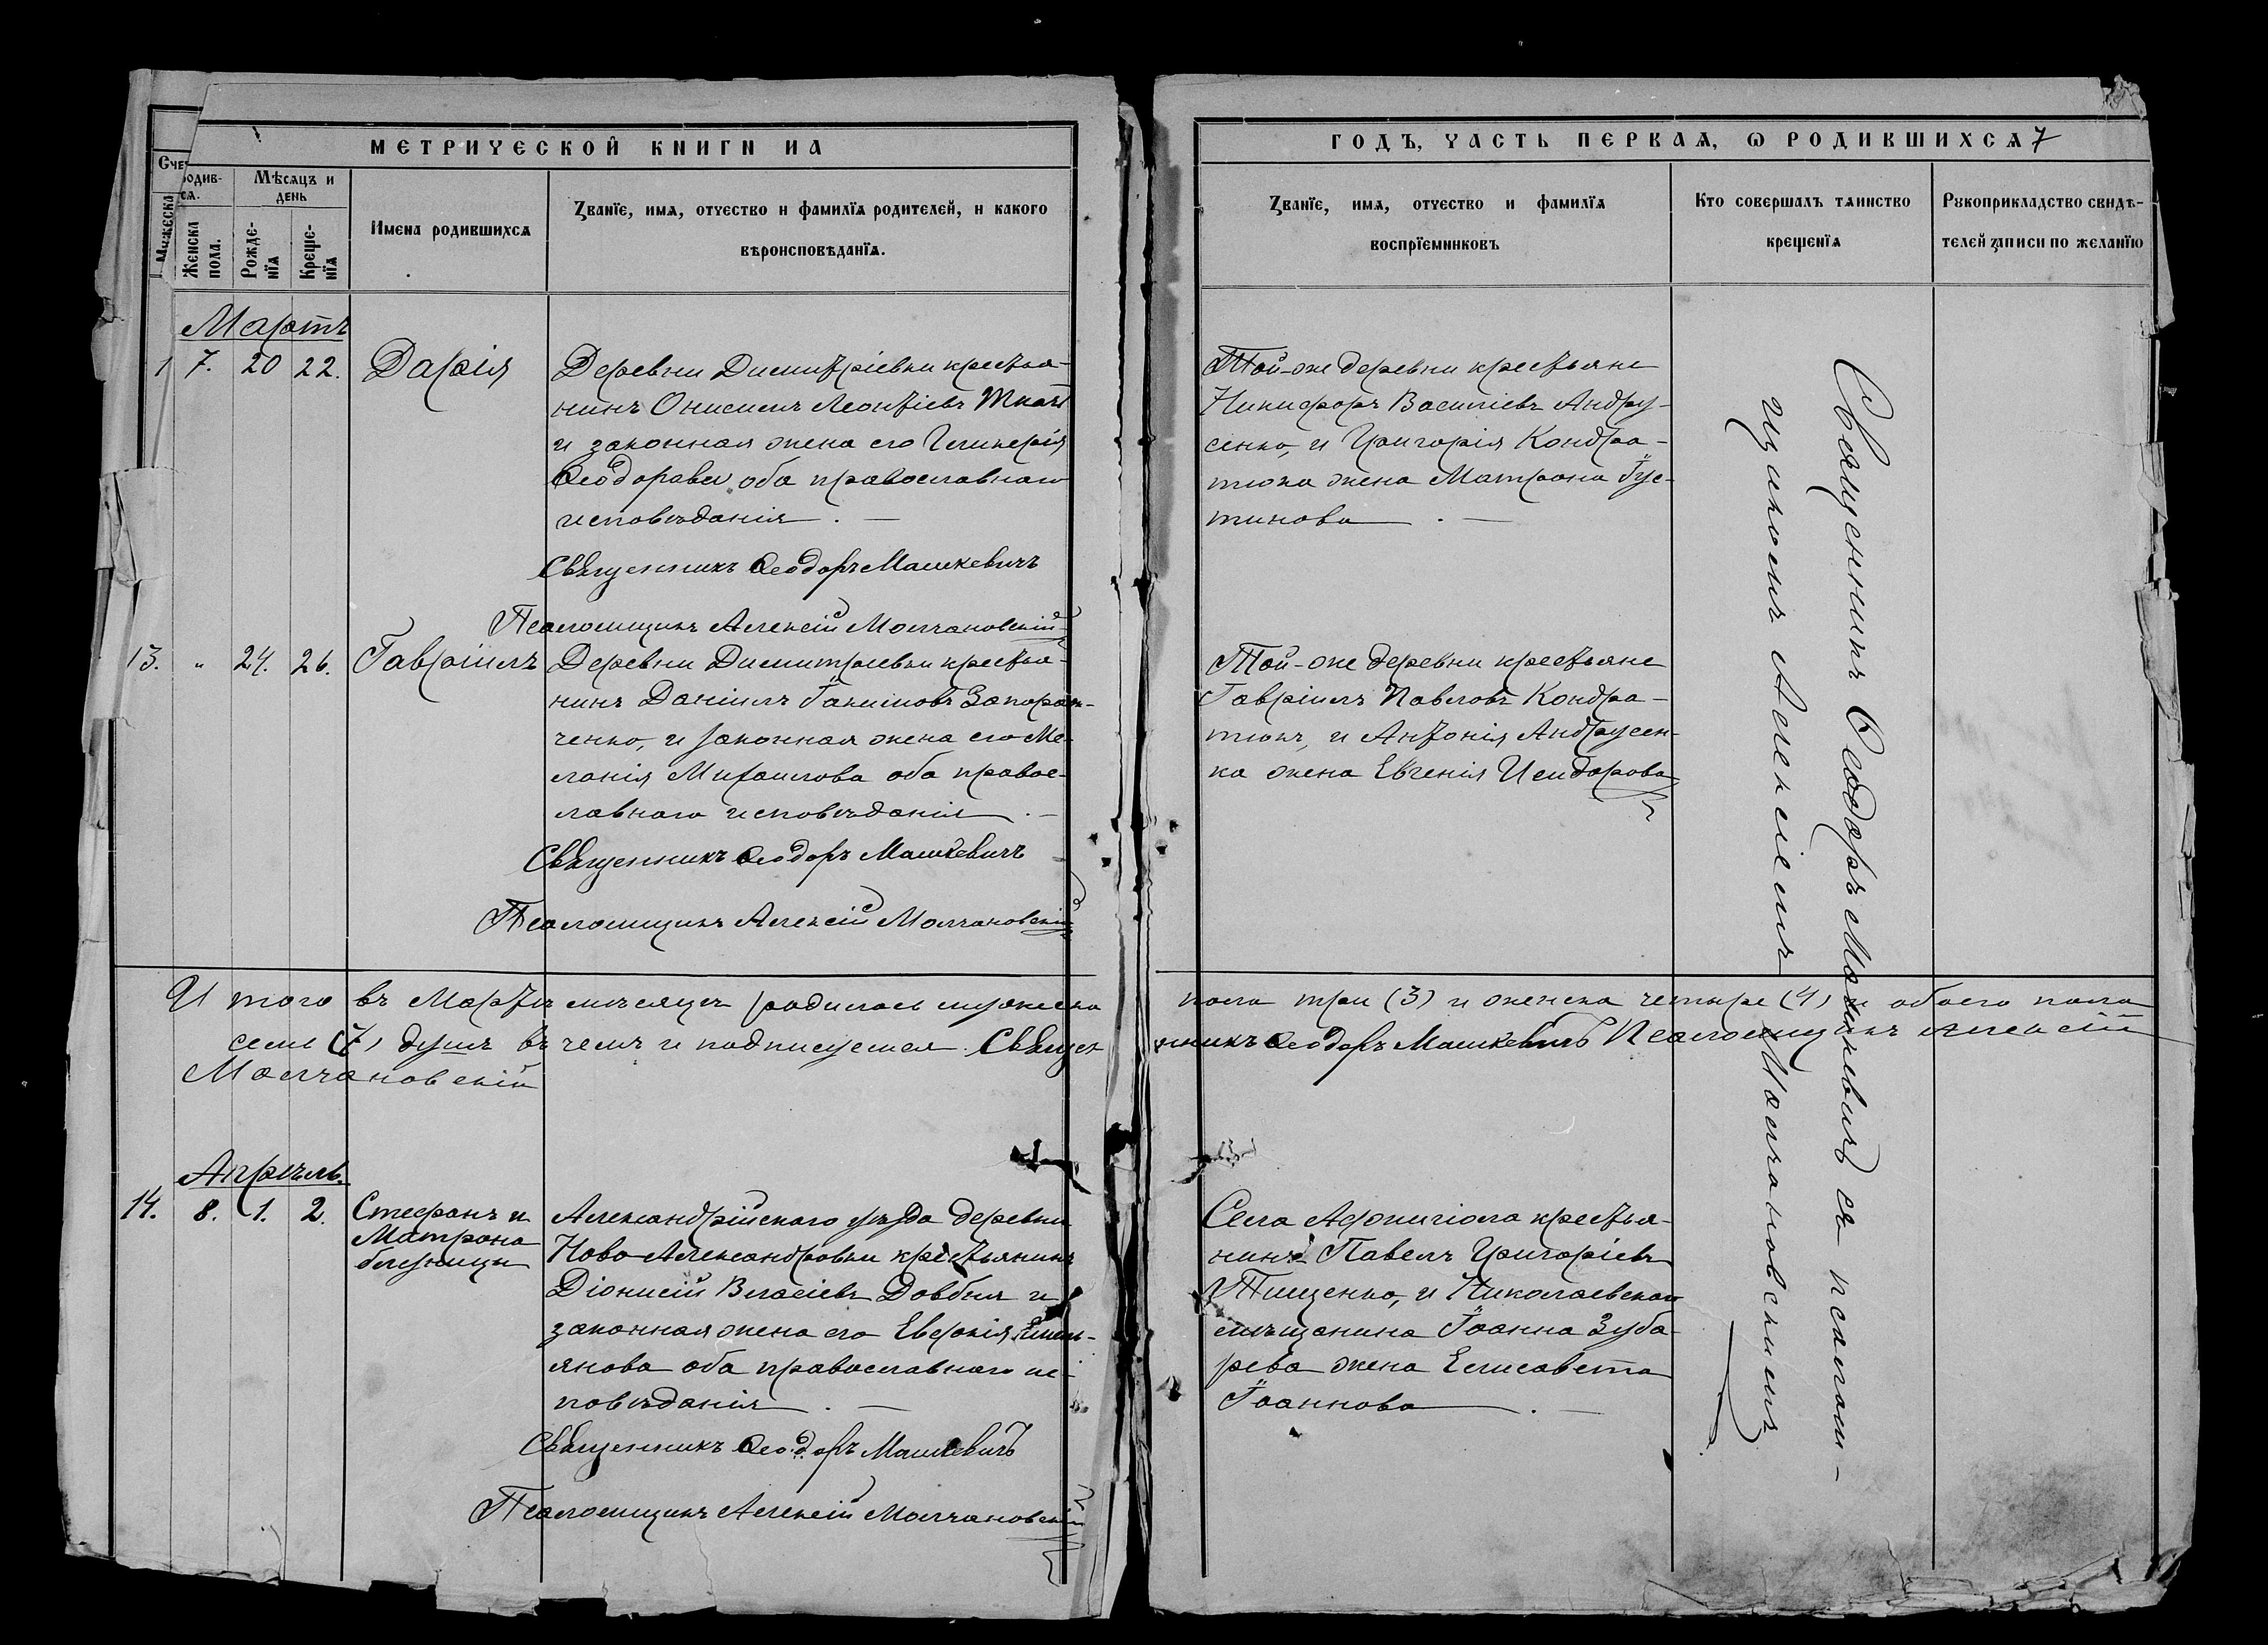 МЕТРИЧЕСКОЙ КНИГИ НА
Счетъ родив-
ся.
Мѣсяцъ и
день
Мужеска
Женска
пола.
Рожде-
нїя
Креще-
нїя
Имена родившихся
Званїе, имя, отчество и фамилїя родителей, и какого
вѣроисповѣданїя.
Мартъ
7. 20 22. Дарія
Деревни Димитріевки крестья-
нинъ Онисимъ Леонтіевъ Ткачъ
и законная жена его Гликерія
Ѳеодорова оба православнаго
исповѣданія. —
Священникъ Ѳеодоръ Машкевичъ
Псаломщикъ Алексій Молчановскій
13. „ 24. 26. Гавріилъ
Деревни Димитріевки крестья-
нинъ Даніилъ Іакимовъ Запорож-
ченко, и законная жена его Ме-
ланія Михаилова оба правос-
лавнаго исповѣданія. —
Священникъ Ѳеодоръ Машкевичъ
Псаломщикъ Алексій Молчановскій
И того въ Мартѣ мѣсяцѣ родилось мужеска
семь (7) душъ въ чемъ и подписуемся. Священ
Молчановскій
Апрѣль
14. 8. 1. 2. Стефанъ и
Матрона
близнецы
Александрійскаго уѣзда деревни
Ново-Александровки крестьянинъ
Діонисій Власіевъ Довбня и
законная жена его Евфимія Емель-
янова оба православнаго ис-
повѣданія. —
Священникъ Ѳеодоръ Машкевичъ
Псаломщикъ Алексій Молчановскій
ГОДЪ, ЧАСТЬ ПЕРВАЯ, Ѡ РОДИВШИХСЯ 7
Званїе, имя, отчество и фамилїя
воспрїемниковъ
Кто совершалъ таинство
крещенїя
Рукоприкладство свидѣ-
телей записи по желанїю
Той-же деревни крестьяне
Никифоръ Василіевъ Андру-
сенко, и Григорія Кондра-
тюка жена Матрона Іус-
тинова. —
Той-же деревни крестьяне
Гавріилъ Павловъ Кондра-
тюкъ, и Антонія Андрусен-
ка жена Евгенія Исидорова
пола три (3) и женска четыре (4) и обоего пола
никъ Ѳеодоръ Машкевичъ Псаломщикъ Алексій
Села крестья-
нинъ Павелъ Григоріевъ
Тищенко, и Николаевскаго
мѣщанина Іоанна Зуба-
рева жена Елисавета
Іоаннова. —
Священникъ Ѳеодоръ Машкевичъ съ псалом-
щикомъ Алексіемъ Молчановскимъ